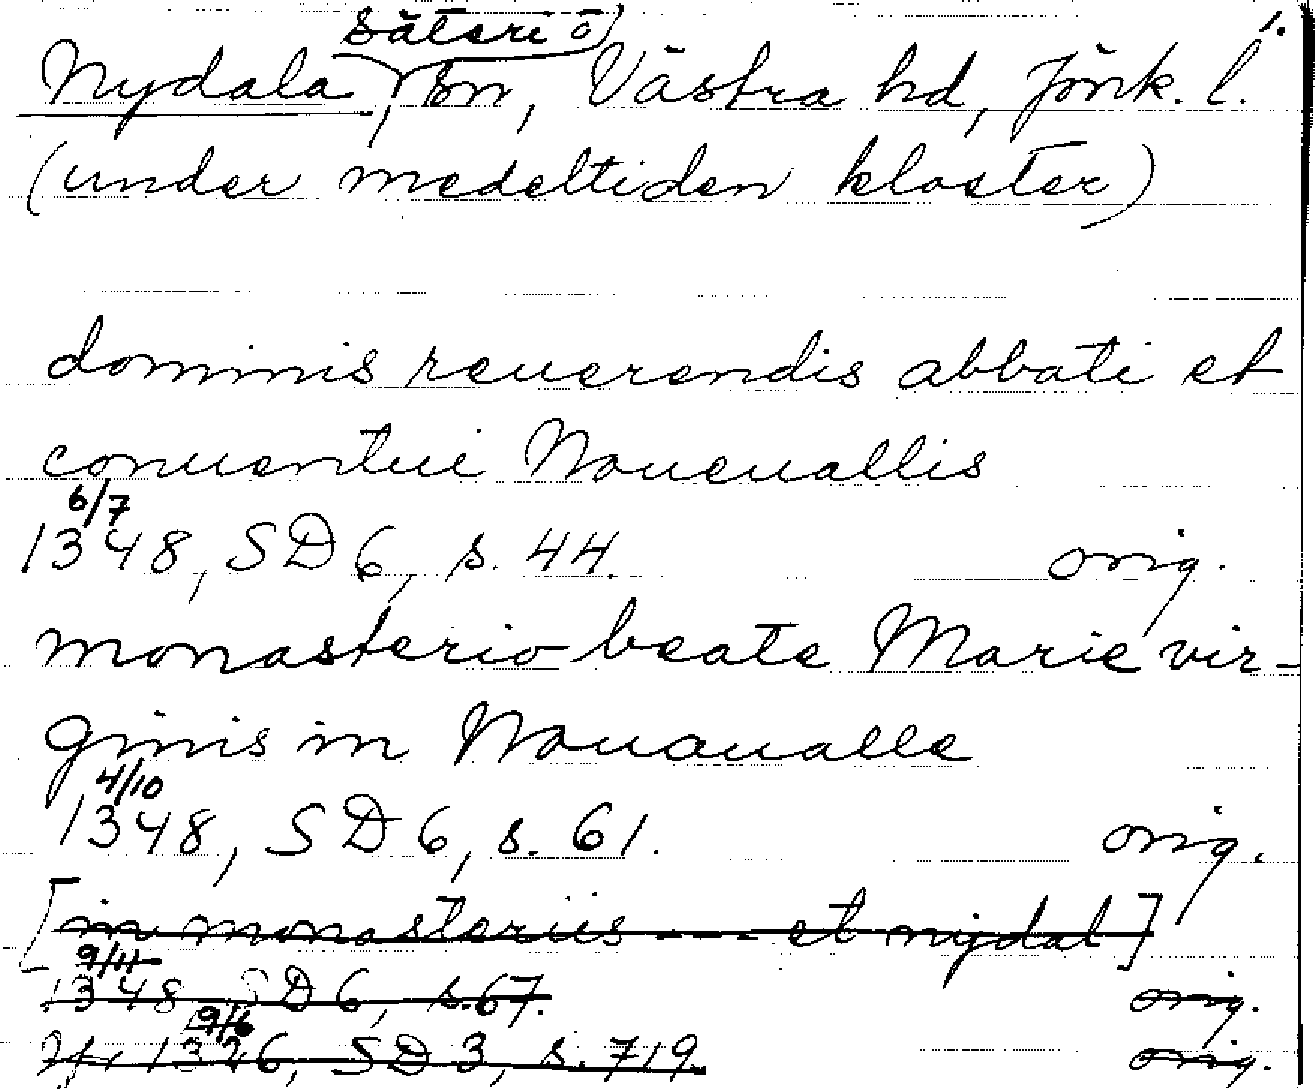 säteri o 1.
Nydala, sn, Västra hd, Jönk. l.
(under medeltiden kloster)
dominis reuerendis abbati et
conuentui Noueuallis
6/7
1348, SD 6, s. 44. orig.
monasterio beate Marie vir-
ginis in Nouaualle
4/10
1348, SD 6, s. 61. orig.
[in monasteriis --- et nydal]
9/11
1348, SD 6, s. 67. orig.
9/6
Jfr 1326, SD 3, s. 719. orig.